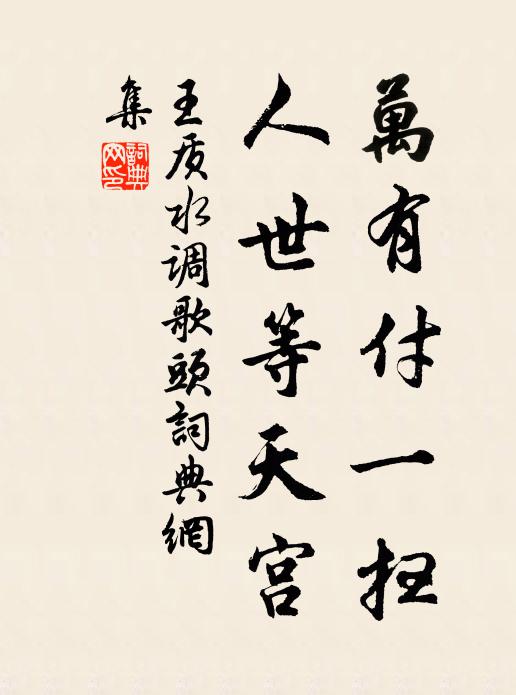 萬有付一扫
人世等天宫
王质水调歌頭詞典網
集
詞典网印